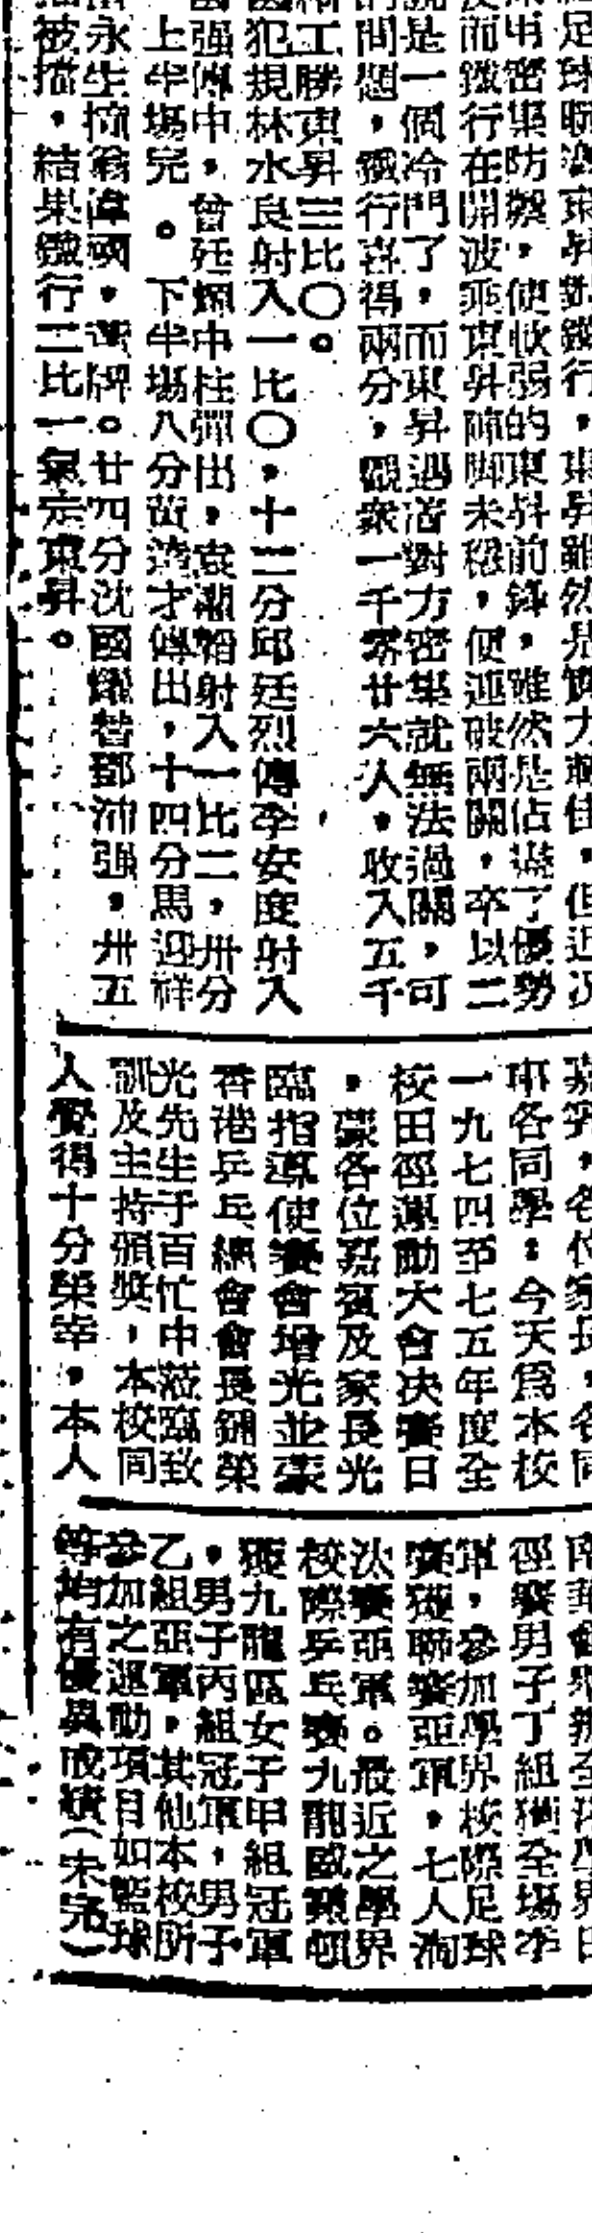 足球
密集防禦，使較弱的東昇前鋒，雖然是佔盡了優勢
而鐵行在開波乘東昇陣脚未穩，便連破兩關，卒以二
是一個冷門了，而東昇遇着對方密集就無法過關，可
問題，鐵行喜得兩分，觀衆一千零廿六人，收入五千
工勝東昇三比〇。
犯規林水良射入一比〇，十二分邱廷烈傳李安度射入
强傳中，曾廷輝中柱彈出，袁射入一比二，卅分
上半場完。下半場八分黃才傳出，十四分馬迎祥
永生，黃牌。廿四分沈國耀替鄧沛强，卅五
被擋，結果鐵行二比一氣走東昇。
嘉賓，各位家長，各同
各同學：今天爲本校
一九七四至七五年度全
校田徑運動大會决賽日
，蒙各位嘉賓及家長光
臨指導使賽會增光並蒙
香港乒乓總會會長鍾榮
光先生于百忙中蒞臨致
訓及主持頒獎，本校同
人覺得十分榮幸，本人
徑賽男子丁組獲全場季
軍，參加學界校際足球
賽獲聯賽亞軍，七人淘
汰賽亞軍。最近之學界
校際乒乓賽九龍區
獲九龍區女子甲組冠軍
，男子丙組冠軍，男子
乙組亞軍，其他本校所
參加之運動項目如籃球
等均有優異成績（未完）